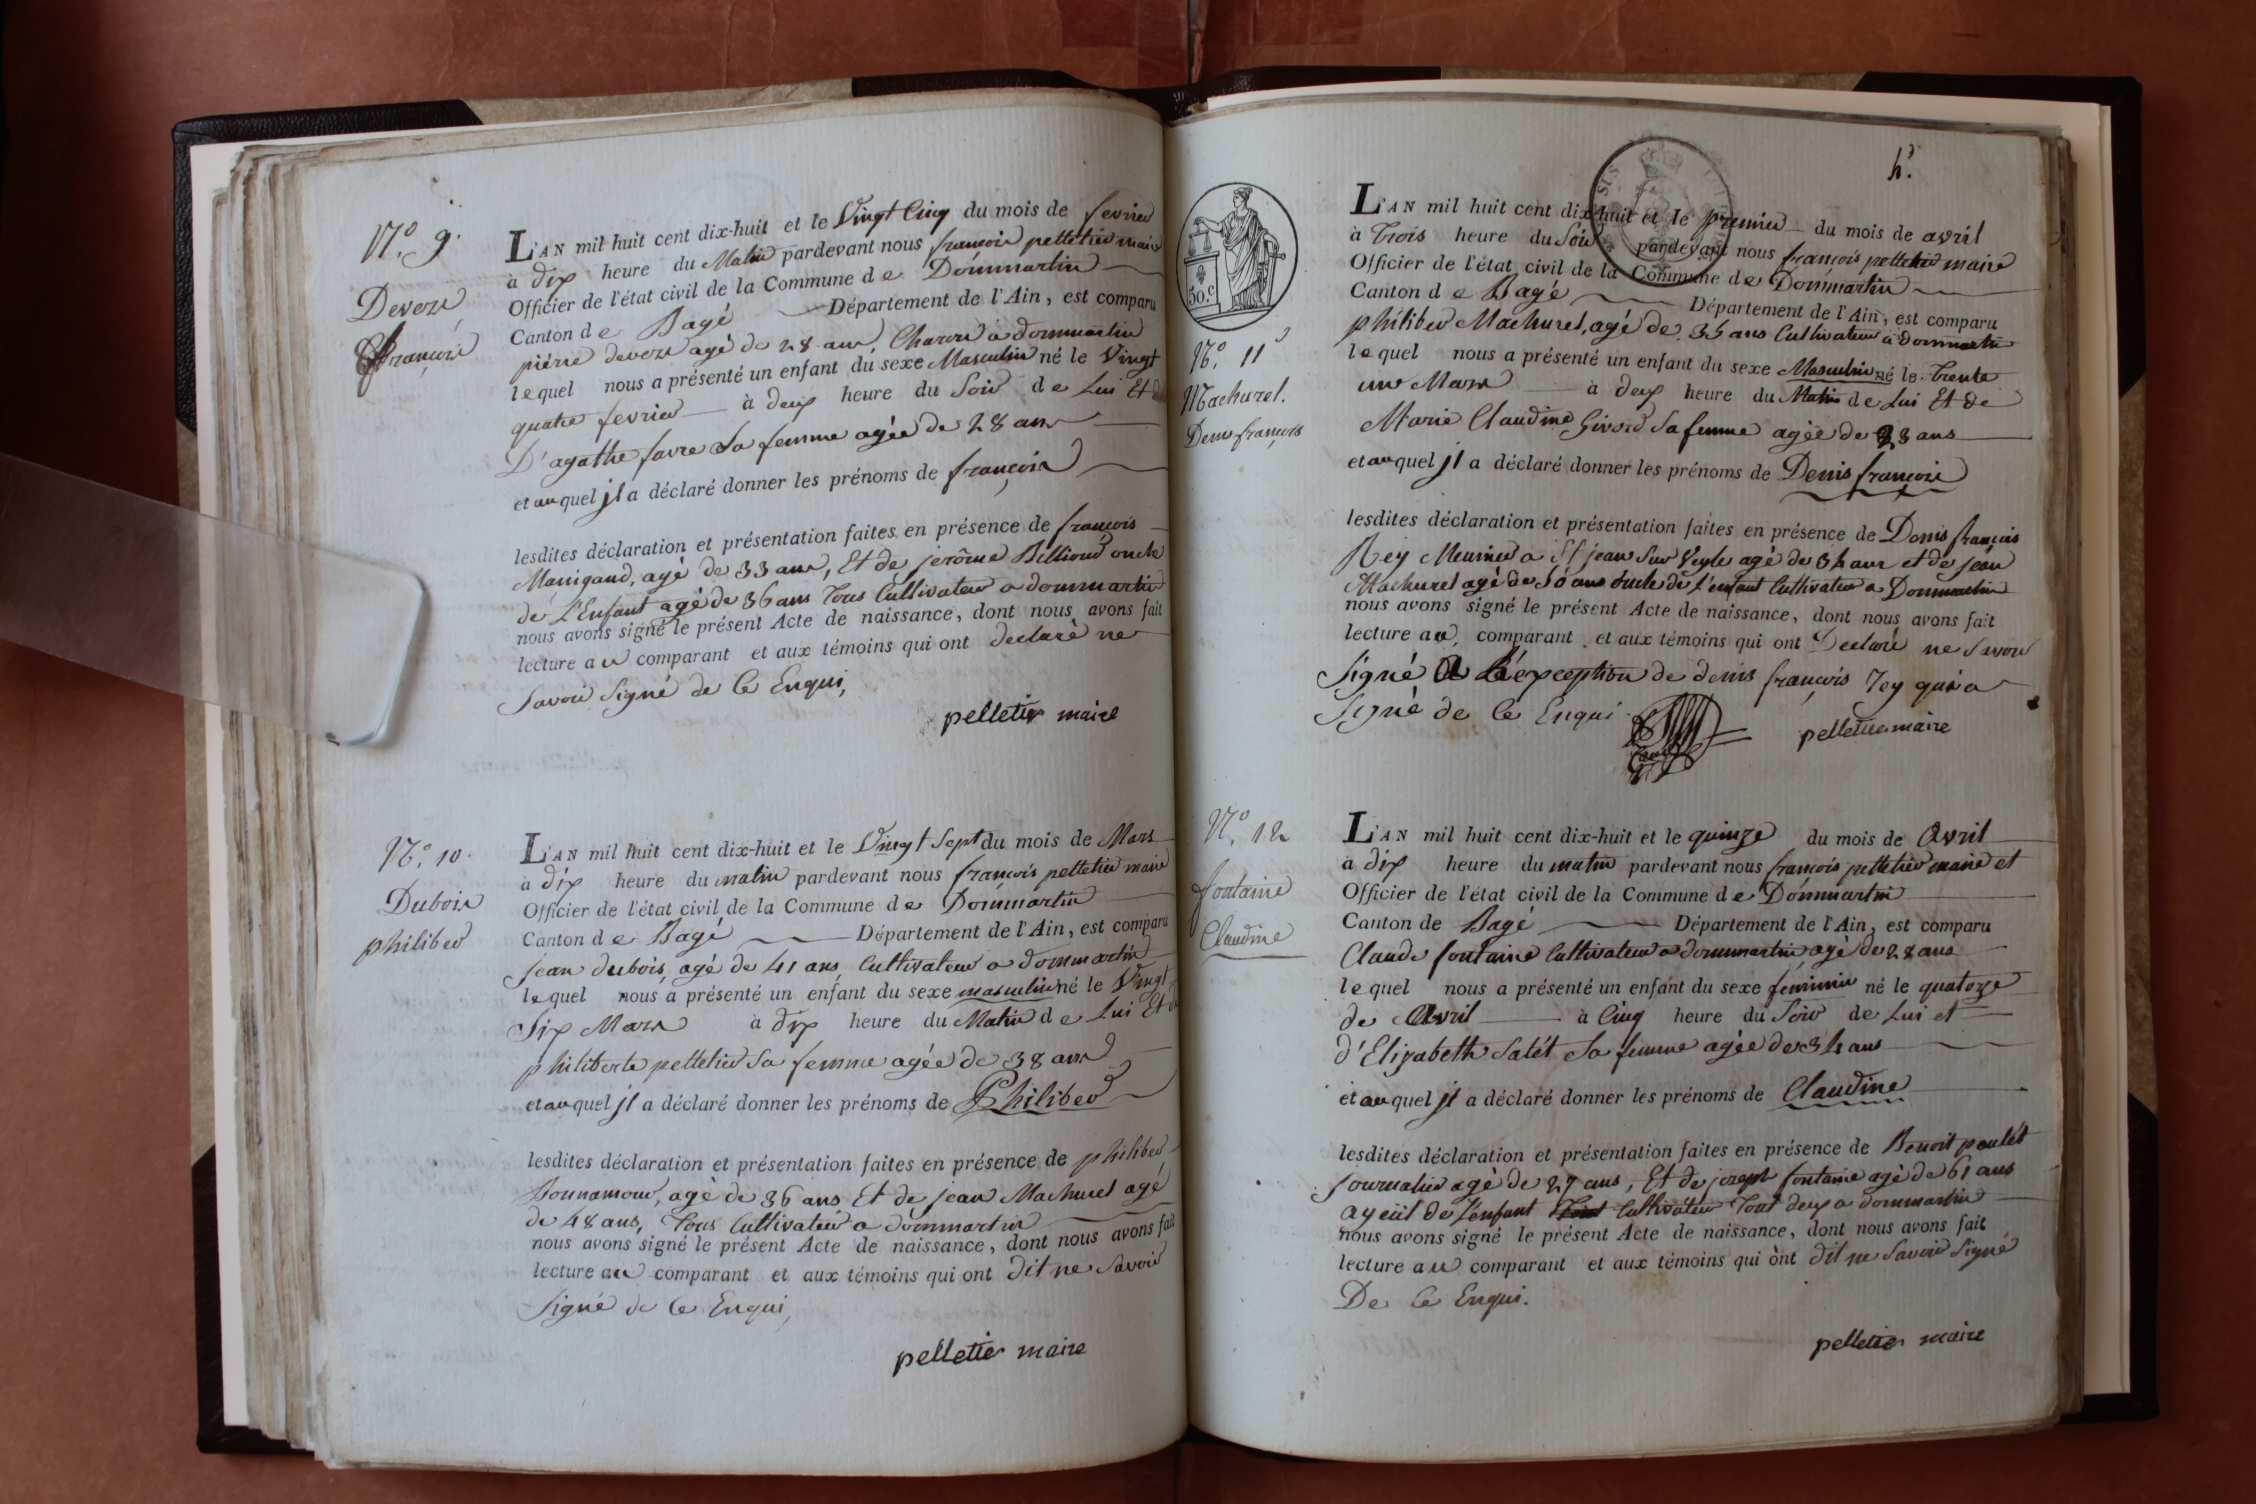 N.º 9.
Devers
françois
L'AN mil huit cent dix-huit et le Vingt Cinq du mois de fevrier
à dix heure du Matin pardevant nous françois pelletier maire
Officier de l'état civil de la Commune de Dommartin
Canton de Bagé Département de l'Ain, est comparu
pierre devers agé de 28 ans, Charon a dommartin
lequel nous a présenté un enfant du sexe Masculin né le Vingt
quatre fevrier à deux heure du Soir de Lui Et de
D'agathe favre Sa femme agée de 28 ans
et auquel jl a déclaré donner les prénoms de françois
lesdites déclaration et présentation faites en présence de françois
Manigaud, agé de 33 ans, Et de jerôme Billioud oncle
de L'Enfant agé de 36 ans Tous Cultivateur a dommartin
nous avons signé le présent Acte de naissance, dont nous avons fait
lecture au comparant et aux témoins qui ont declaré ne
Savoir Signé de Ce Enqui,
pelletier maire
N.º 10.
Dubois
philiber
L'AN mil huit cent dix-huit et le Vingt Sept du mois de Mars
à dix heure du matin pardevant nous françois pelletier maire
Officier de l'état civil de la Commune de Dommartin
Canton de Bagé Département de l'Ain, est comparu
jean dubois, agé de 41 ans, Cultivateur a dommartin
lequel nous a présenté un enfant du sexe masculin né le Vingt
Six Mars à dix heure du Matin de Lui Et de
philiberte pelletier Sa femme agée de 38 ans
et auquel jl a déclaré donner les prénoms de Philiber
lesdites déclaration et présentation faites en présence de philiber
Bonnamour, agé de 36 ans Et de jean Machurel agé
de 48 ans, Tous Cultivateur a dommartin
nous avons signé le présent Acte de naissance, dont nous avons fait
lecture au comparant et aux témoins qui ont dit ne Savoir
Signé de Ce Enqui,
pelletier maire
50.c
N.º 11
Machurel.
Denis françois
L'AN mil huit cent dix-huit et le premier du mois de avril
à Trois heure du Soir pardevant nous françois pelletier maire
Officier de l'état civil de la Commune de Dommartin
Canton de Bagé Département de l'Ain, est comparu
philiber Machurel, agé de 35 ans Cultivateur a dommartin
lequel nous a présenté un enfant du sexe Masculin né le Trente
un Mars à deux heure du Matin de Lui Et de
Marie Claudine Givord Sa femme agée de 28 ans
et auquel jl a déclaré donner les prénoms de Denis françois
lesdites déclaration et présentation faites en présence de Denis françois
Rey Meunier a St jean Sur Veyle agé de 34 ans et de jean
Machurel agé de 50 ans oncle de L'enfant Cultivateur a Dommartin
nous avons signé le présent Acte de naissance, dont nous avons fait
lecture au comparant et aux témoins qui ont Declaré ne Savoir
Signé A L'exception de denis françois Rey qui a
Signé de Ce Enqui
pelletier maire
N.º 12
fontaine
Claudine
L'AN mil huit cent dix-huit et le quinze du mois de Avril
à dix heure du matin pardevant nous françois pelletier maire et
Officier de l'état civil de la Commune de Dommartin
Canton de Bagé Département de l'Ain, est comparu
Claude fontaine Cultivateur a dommartin agé de 28 ans
lequel nous a présenté un enfant du sexe féminin né le quatorze
de Avril à Cinq heure du Soir de Lui et
d'Elizabeth Salét Sa femme agée de 34 ans
et auquel jl a déclaré donner les prénoms de Claudine
lesdites déclaration et présentation faites en présence de Benoit poulét
journalier agé de 27 ans, Et de jozeph fontaine agé de 61 ans
ayeüil de L'enfant Cultivateur Tout deux a dommartin
nous avons signé le présent Acte de naissance, dont nous avons fait
lecture au comparant et aux témoins qui ont dit ne Savoir Signé
De Ce Enqui.
pelletier maire